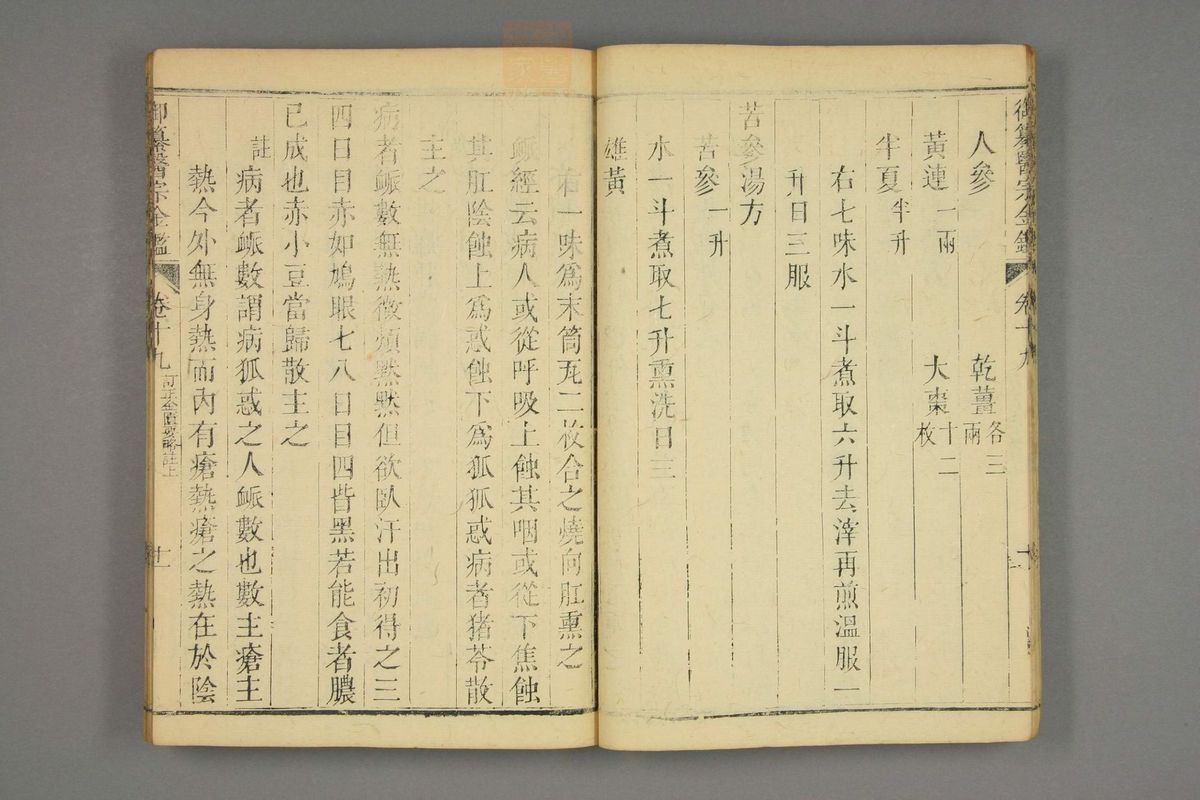 御纂醫宗金鑑 卷十九
人參 乾薑各三兩
黃連一兩 大棗十二枚
半夏半升
右七味水一斗煮取六升去滓再煎溫服一
升日三服
苦參湯方
苦參一升
水一斗煮取七升熏洗日三
雄黃
右一味爲末筒瓦二枚合之燒向肛熏之
脈經云病人或從呼吸上蝕其咽或從下焦蝕
其肛陰蝕上爲惑蝕下爲狐狐惑病者猪苓散
主之
病者脈數無熱微煩默默但欲臥汗出初得之三
四日目赤如鳩眼七八日目四眥黑若能食者膿
已成也赤小豆當歸散主之
註病者脈數謂病狐惑之人脈數也數主瘡主
熱今外無身熱而內有瘡熱瘡之熱在於陰
御纂醫宗金鑑 卷十九 訂正金匱要略註上